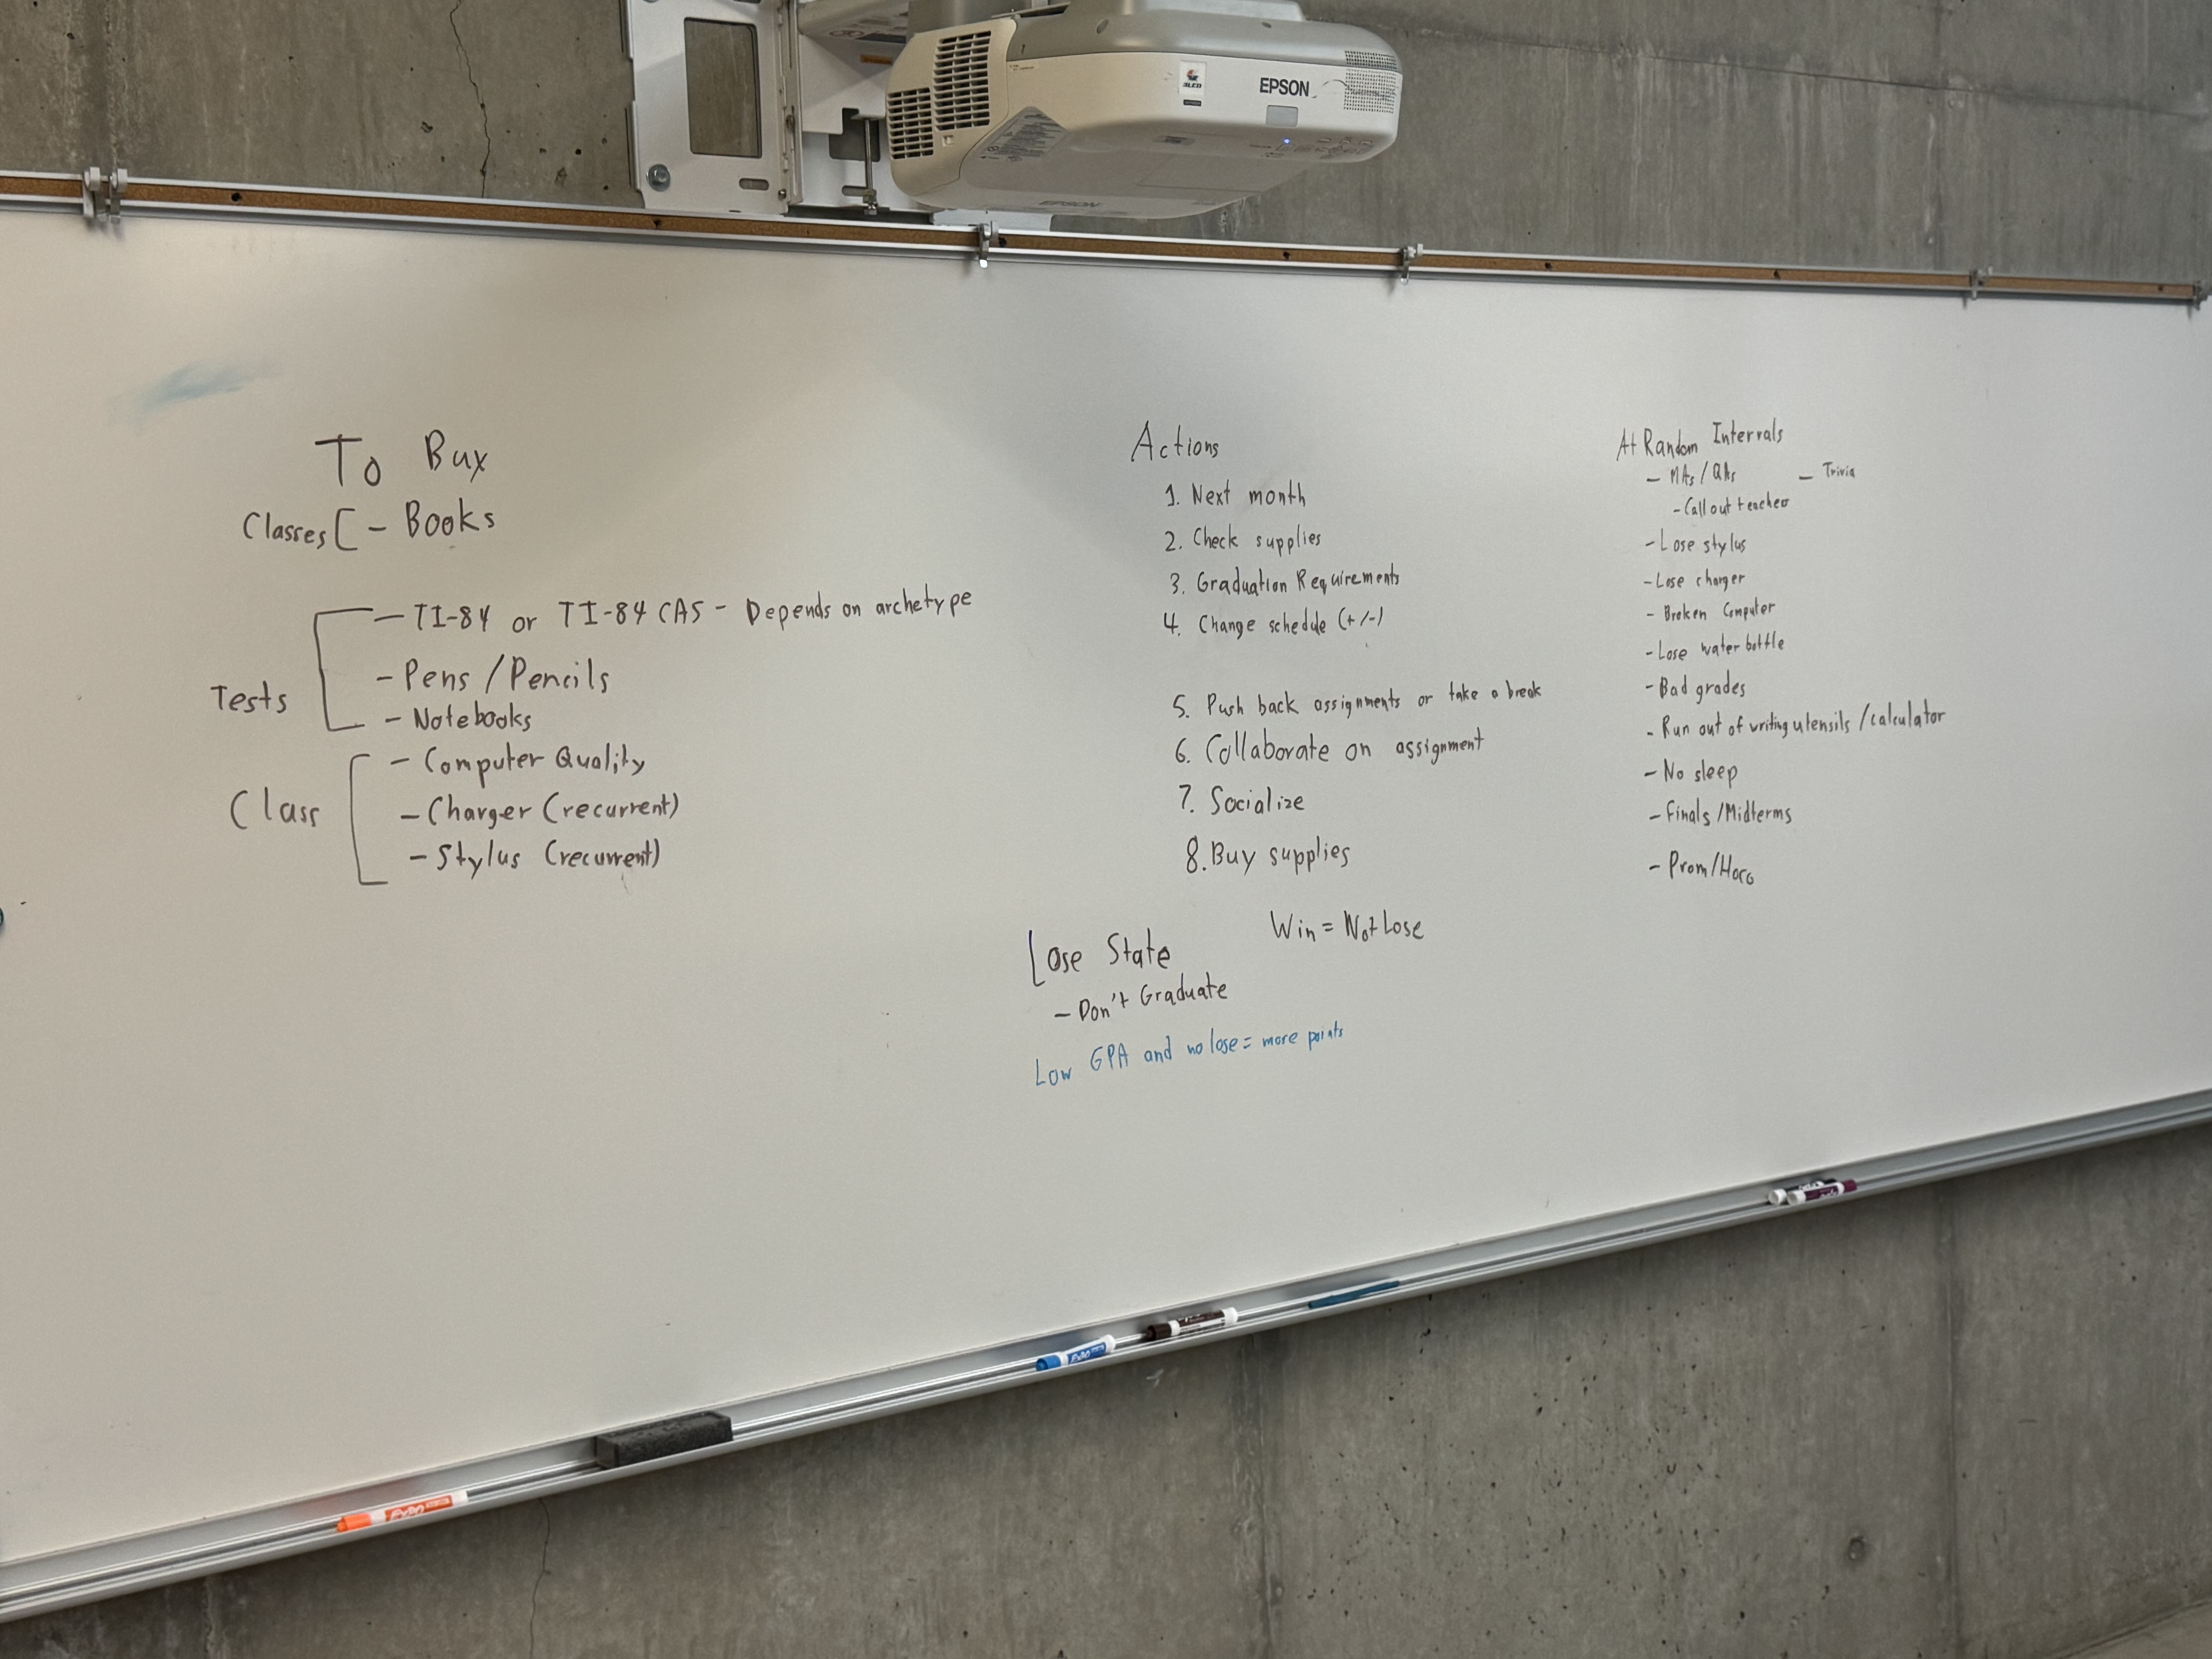 EPSON
To Buy
Classes [ - Books
- TI-84 or TI-84 CAS - Depends on archetype
- Pens / Pencils
Tests
- Notebooks
- Computer Quality
Class
- Charger (recurrent)
- Stylus (recurrent)
Actions
1. Next month
2. Check supplies
3. Graduation Requirements
4. Change schedule (+/-)
5. Push back assignments or take a break
6. Collaborate on assignment
7. Socialize
8. Buy supplies
Lose State
- Don't Graduate
Win = Not Lose
Low GPA and no lose = more points
At Random Intervals
- MAs / QAs - Trivia
- Call out teacher
- Lose stylus
- Lose charger
- Broken Computer
- Lose water bottle
- Bad grades
- Run out of writing utensils / calculator
- No sleep
- Finals / Midterms
- Prom/Hoco
EXPO
EXPO